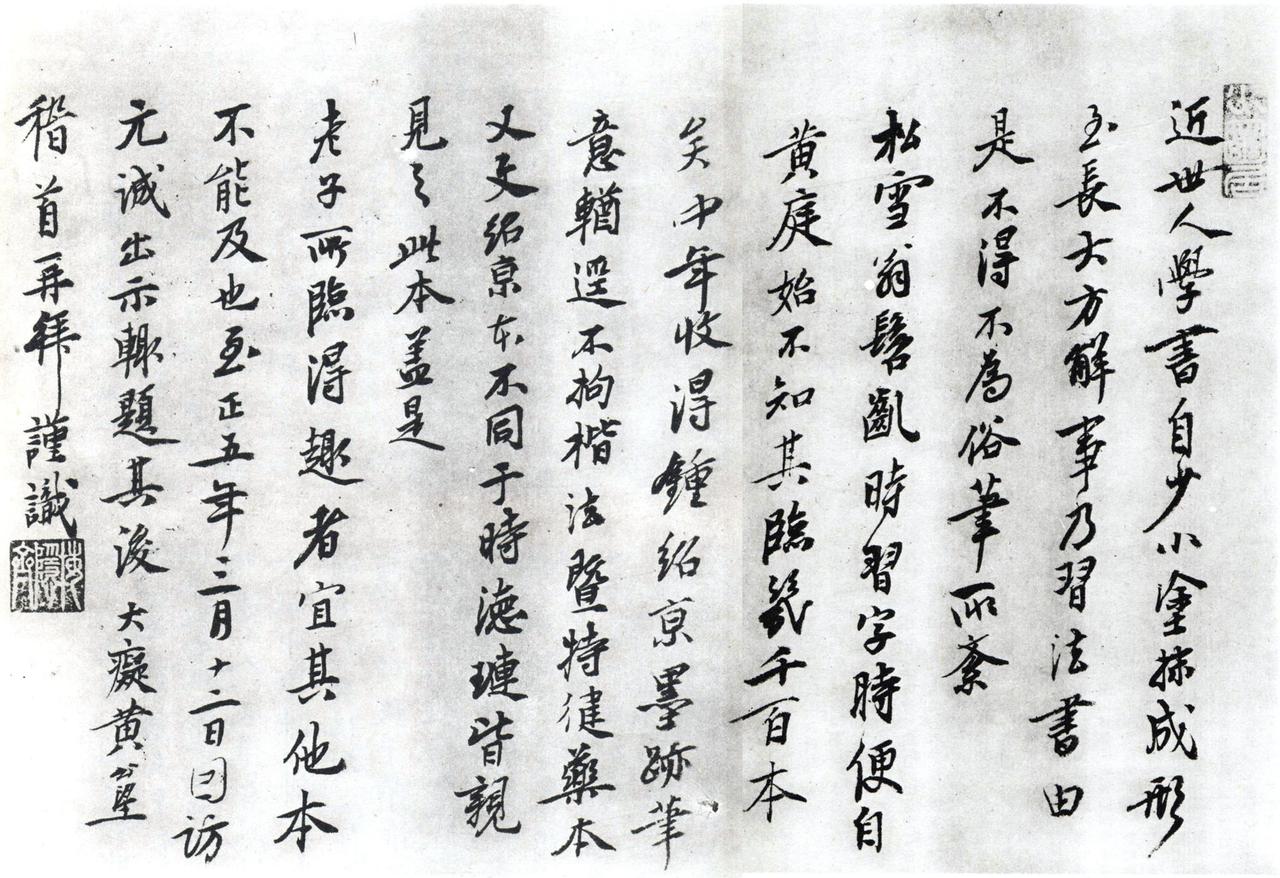 近世人學書自少小塗抹成形
至長大方解事乃習法書由
是不得不為俗筆所紊
松雪翁髫齔時習字時便自
黄庭始不知其臨幾千百本
矣中年收得鍾紹京墨跡筆
意輶逕不拘楷法暨特健藥本
又更紹京本不同于時德璉皆親
見之此本盖是
老子所臨得趣者宜其他本
不能及也至正五年三月十二日因訪
元誠出示輙題其後大癡黄公望
稽首再拜謹識